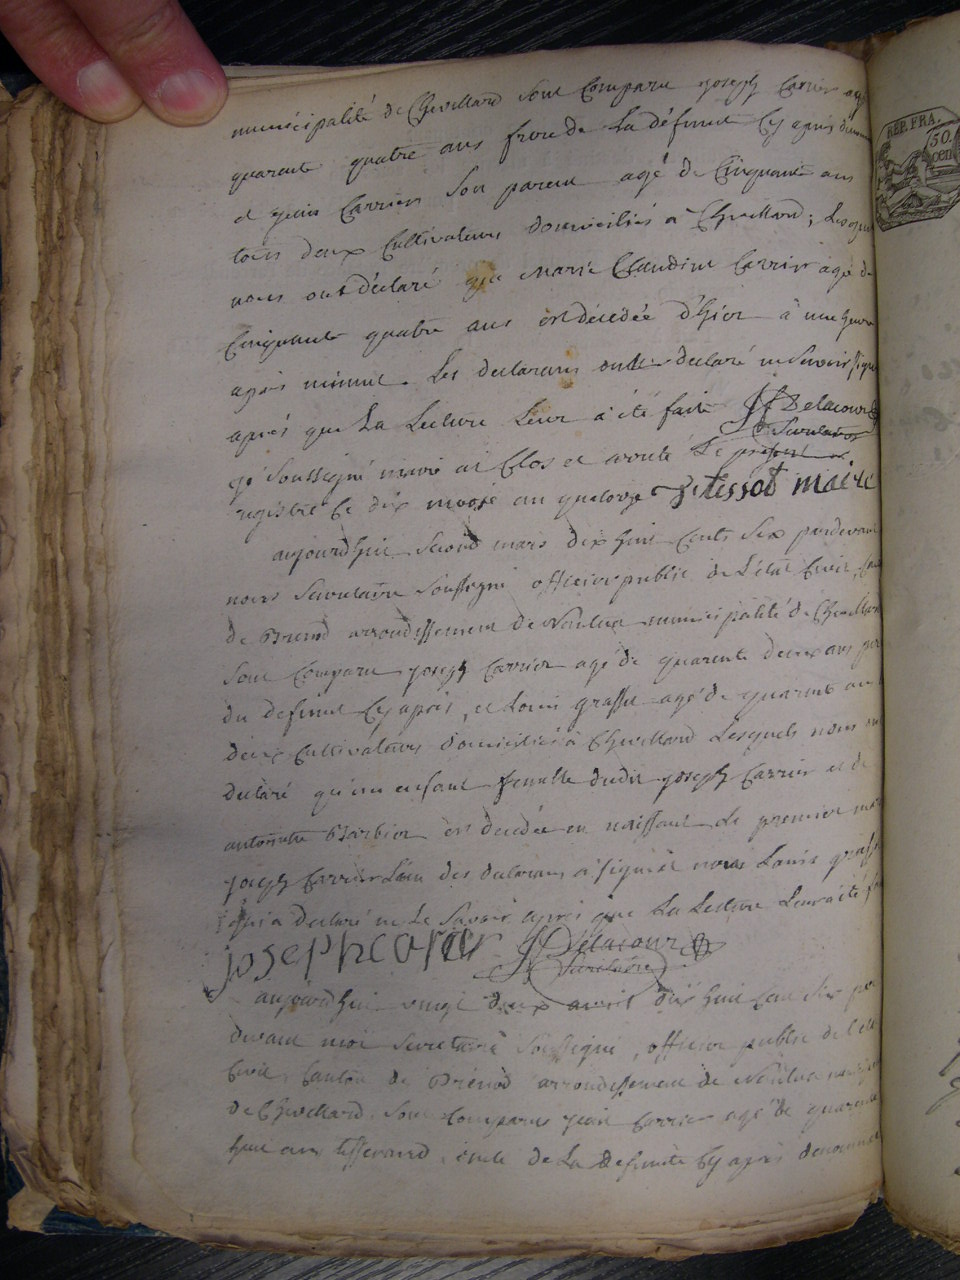 municipalité de Chevillard sont Comparu joseph Carrier agé
quarente quatre ans frere de La défunte Cy après denom
et jean Carrier son parent agé de Cinquante ans
tous deux Cultivateurs domiciliés à Chevillard, Lesquel
nous ont déclaré que marie Claudine Carrier agé de
Cinquante quatre ans est décédée d'hier à une heure
après minuit. Les declarans ont declaré ne Savoir signe
après que La Lecture Leur a été faite JJ Delacour
Secretaire
je Soussigné maire ai Clos et areté Le présent
registre Ce dix mars an quatorze tissot maire
aujourdhui Second mars dix huit Cents Six pardevant
nous Secretaire Soussigné officier public de L'état Civil, Can
de Brenod arrondissement de Nantua municipalité de Chevillard
sont Comparu joseph Carrier agé de quarente deux ans per
du defunt Cy après, et Louis grasset agé de quarente ans
deux Cultivateurs domiciliés à Chevillard Lesquels nous on
declaré qu'un enfant femelle dudit joseph Carrier et de
antoinette Barbier est decedée en naissant le premier mar
joseph Carrier L'un des declarans a signé et non Louis grasse
qui a declaré ne Le Savoir après que La Lecture Leur a été fa
joseph carier JJ Delacour
Secretaire
aujourdhui vingt deux avril dix huit Cent Six par
devant moi Secretaire Soussigné, officier public de l'éta
Civil, Canton de Brénod arrondissement de Nantua
de Chevillard, sont Comparus jean Carrier agé de quarente
huit ans tisserand, oncle de La defunte Cy après denommé
REP. FRA.
50.
cen